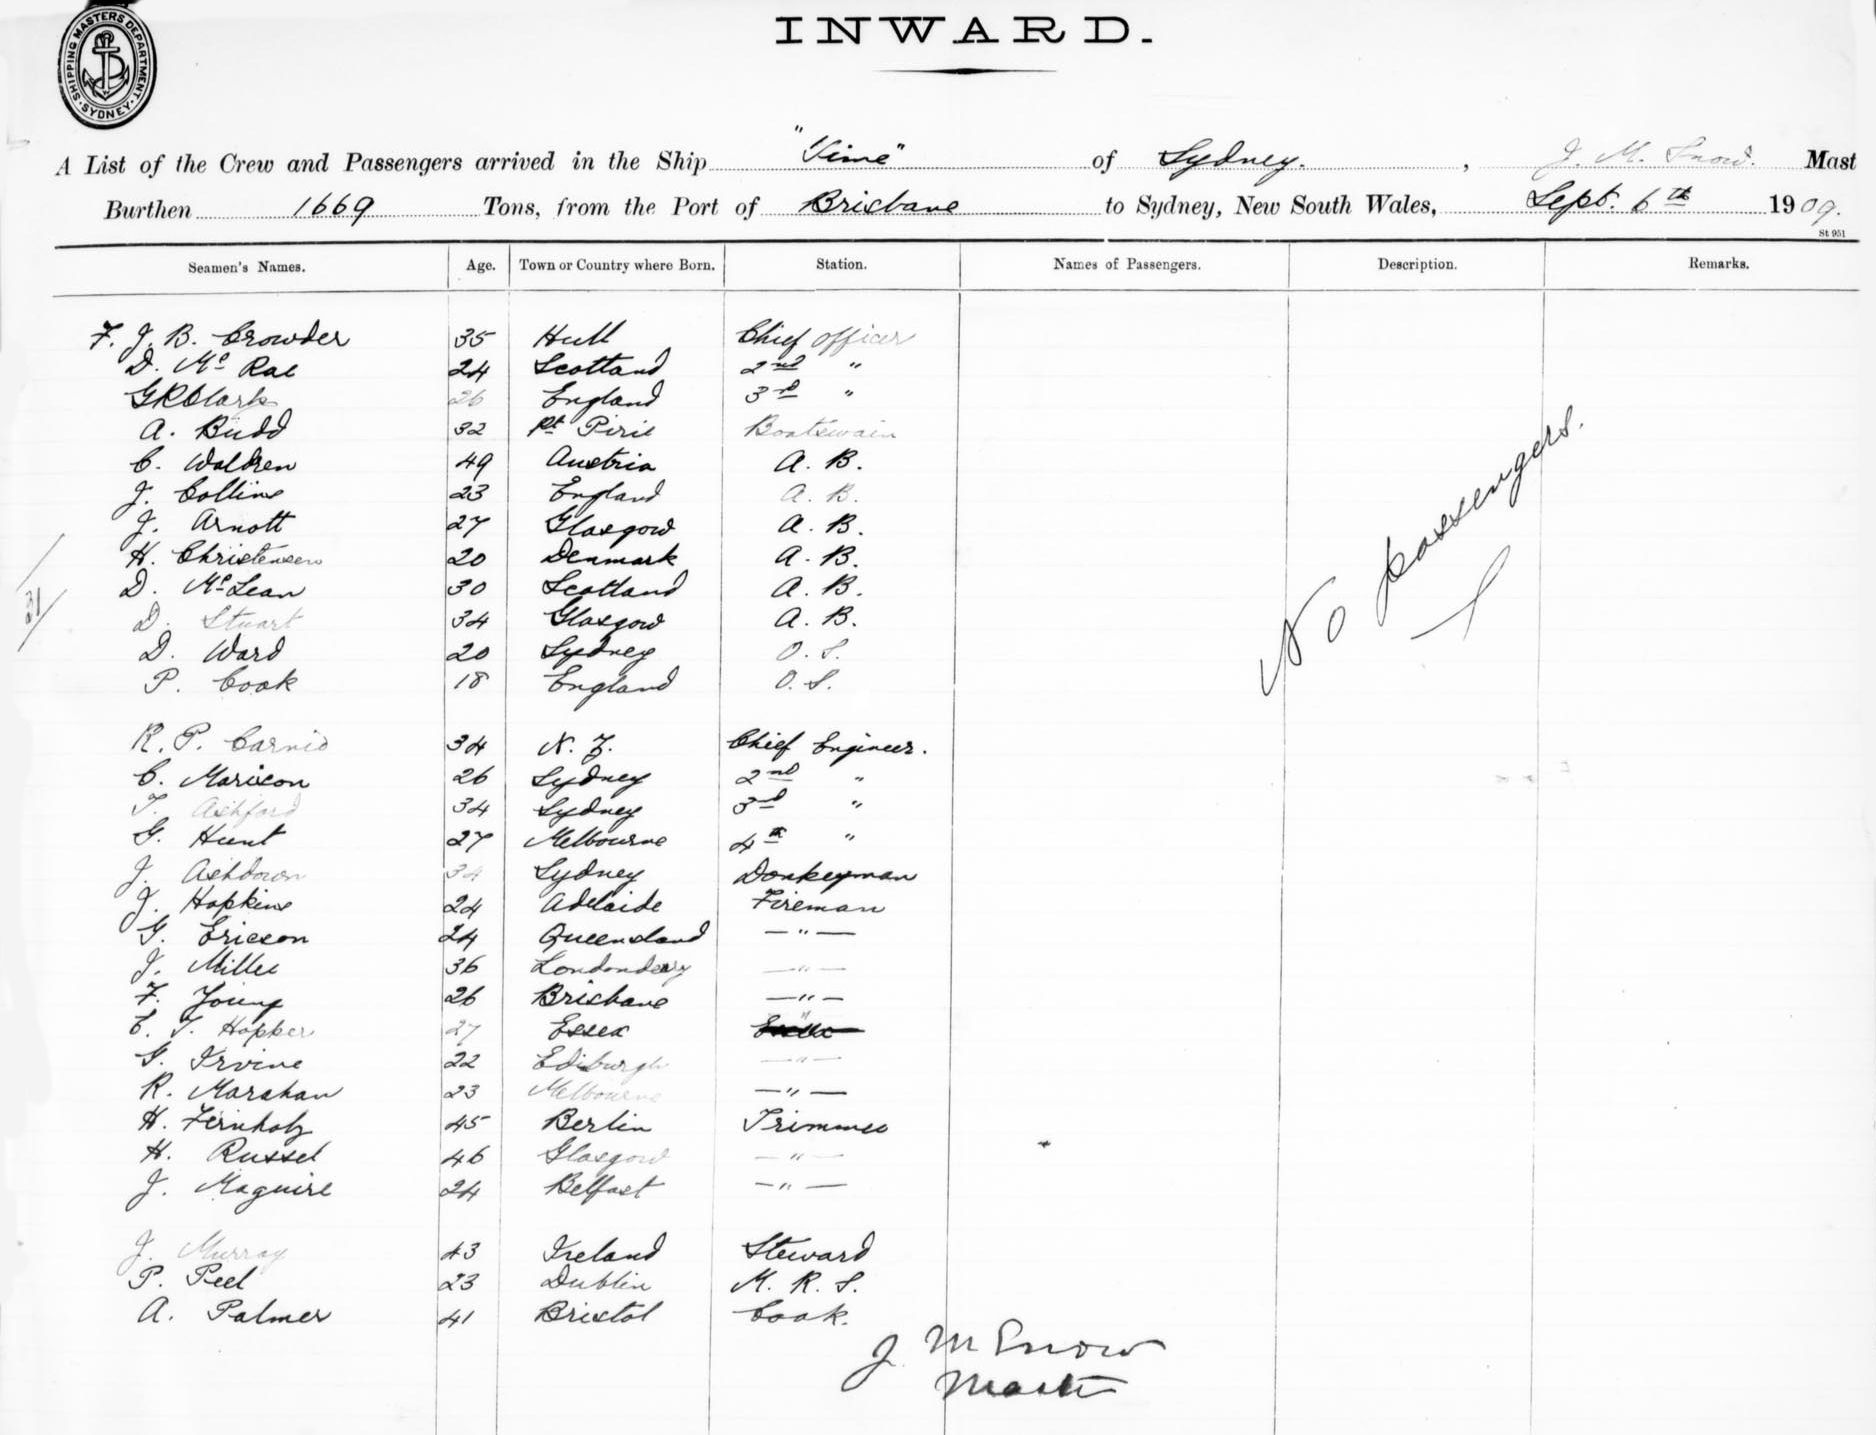 INWARD.
SHIPPING MASTERS DEPARTMENT SYDNEY
A List of the Crew and Passengers arrived in the Ship "Time" of Sydney. , J. M. Snow. Mast
Burthen 1669 Tons, from the Port of Brisbane to Sydney, New South Wales, Sept. 6th 1909.
St 951
Seamen's Names. Age. Town or Country where Born. Station. Names of Passengers. Description. Remarks.
F. J. B. Crowder 35 Hull Chief Officer
D. Mc Rae 24 Scotland 2nd "
G R Clark 26 England 3rd "
A. Budd 32 Pt Pirie Boatswain
C. Waldren 49 Austria A. B.
J. Collins 23 England A. B.
J. Arnott 27 Glasgow A. B.
H. Christensen 20 Denmark A. B.
D. McLean 30 Scotland A. B.
D. Stuart 34 Glasgow A. B.
D. Ward 20 Sydney O. S.
P. Cook 18 England O. S.
No passengers.
31/
R. P. 34 N. Z. Chief Engineer.
C. Morison 26 Sydney 2nd "
T. Ashford 34 Sydney 3rd "
G. Hunt 27 Melbourne 4th "
J. Ashdown 34 Sydney Donkeyman
J. Hopkins 24 Adelaide Fireman
G. Ericson 24 Queensland — " —
J. Miller 36 Londonderry — " —
F. Young 26 Brisbane — " —
C. T. Hopper 27 Essex "
G. Irvine 22 Ediburgh — " —
R. Marahan 23 Melbourne — " —
H. Fernholz 45 Berlin Trimmer
H. Russel 46 Glasgow — " —
J. Maguire 24 Belfast — " —
J. Murray 43 Ireland Steward
P. Peel 23 Dublin M. R. S.
A. Palmer 41 Bristol Cook.
J. M Snow
Master